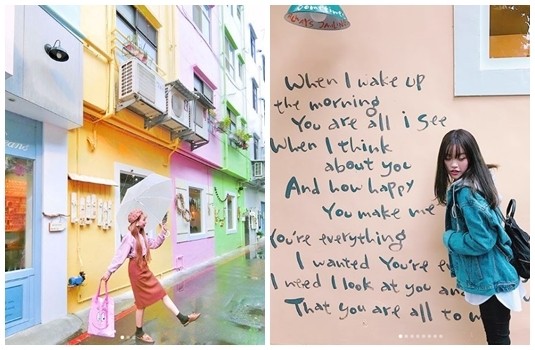 When I wake up
the morning
You are all i see
When I think
about you
And how happy
You make me
You're everything
I wanted You're
I need I look at you and
That you are all to